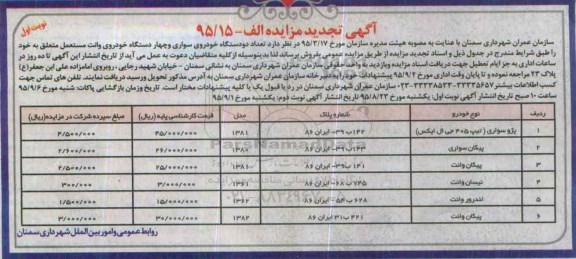 نوبت اول
آگهی تجدید مزایده الف - ۹۵/۱۵
سازمان عمران شهرداری سمنان با عنایت به مصوبه هیئت مدیره سازمان مورخ ۹۵/۳/۱۷ در نظر دارد تعداد دودستگاه خودروی سواری وچهار دستگاه خودروی وانت مستعمل متعلق به خود
را طبق شرایط مندرج در جدول ذیل و اسناد تجدید مزایده از طریق مزایده عمومی بفروش برساند لذا بدینوسیله از کلیه متقاضیان دعوت به عمل می آید از تاریخ انتشار این آگهی تا ده روز در
ساعات اداری به جز ایام تعطیل جهت دریافت اسناد مزایده وبازدید به واحد حقوقی سازمان عمران شهرداری سمنان به نشانی سمنان - خیابان شهید رجایی ، روبروی امامزاده علی ابن جعفر(ع)
پلاک ۲۳ مراجعه نموده و تا پایان وقت اداری مورخ ۹۵/۹/۴ پیشنهادات خود را به دبیرخانه سازمان عمران شهرداری سمنان به آدرس مذکور تحویل ورسید دریافت نمایند. تلفن های تماس جهت
کسب اطلاعات بیشتر ۳۳۳۳۵۶۵۷-۳۳۳۳۸۵۳۳-۰۲۳ سازمان عمران شهرداری سمنان در رد یا قبول یک یا کلیه پیشنهادات مختار است. تاریخ وزمان بازگشایی پاکات: شنبه مورخ ۹۵/۹/۶
ساعت ۱۰ صبح تاریخ انتشار آگهی نوبت اول: یکشنبه مورخ ۹۵/۸/۲۳ تاریخ انتشار آگهی نوبت دوم: یکشنبه مورخ ۹۵/۹/۱
ردیف نوع خودرو شماره پلاک مدل قیمت کارشناسی پایه (ریال) مبلغ سپرده شرکت در مزایده(ریال)
۱ پژو سواری ( تیپ ۴۰۵ جی ال ایکس) ۱۴۲ب۳۹- ایران ۸۶ ۱۳۸۱ ۴۵/۰۰۰/۰۰۰ ۴/۵۰۰/۰۰۰
۲ پیکان سواری ۱۴۳ب۳۹- ایران ۸۶ ۱۳۸۰ ۲۶/۰۰۰/۰۰۰ ۲/۶۰۰/۰۰۰
۳ پیکان وانت ۱۴۱ ب۳۹- ایران ۸۶ ۱۳۸۰ ۲۵/۰۰۰/۰۰۰ ۲/۵۰۰/۰۰۰
۴ نیسان وانت ۷۴۵ ب ۶۸- ایران ۸۶ ۱۳۶۱ ۳/۰۰۰/۰۰۰ ۳۰۰/۰۰۰
۵ لندرور وانت ۶۲۸ ب ۵۴- ایران ۸۶ ۱۳۶۲ ۱۵/۰۰۰/۰۰۰ ۱/۵۰۰/۰۰۰
۶ پیکان وانت ۴۲۱ ب۳۱ ایران ۸۶ ۱۳۸۲ ۳۰/۰۰۰/۰۰۰ ۳/۰۰۰/۰۰۰
روابط عمومی وامور بین الملل شهرداری سمنان